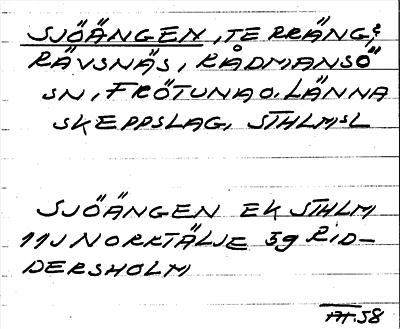 SJÖÄNGEN, TERRÄNG;
RÄVSNÄS, RÅDMANSÖ
SN, FRÖTUNA O. LÄNNA
SKEPPSLAG, STHLMSL
SJÖÄNGEN EK STHLM
11J NORRTÄLJE 3g RID-
DERSHOLM
AT.58